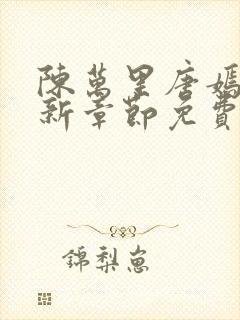 陳萬里唐嫣
新章節免費
錦梨崽